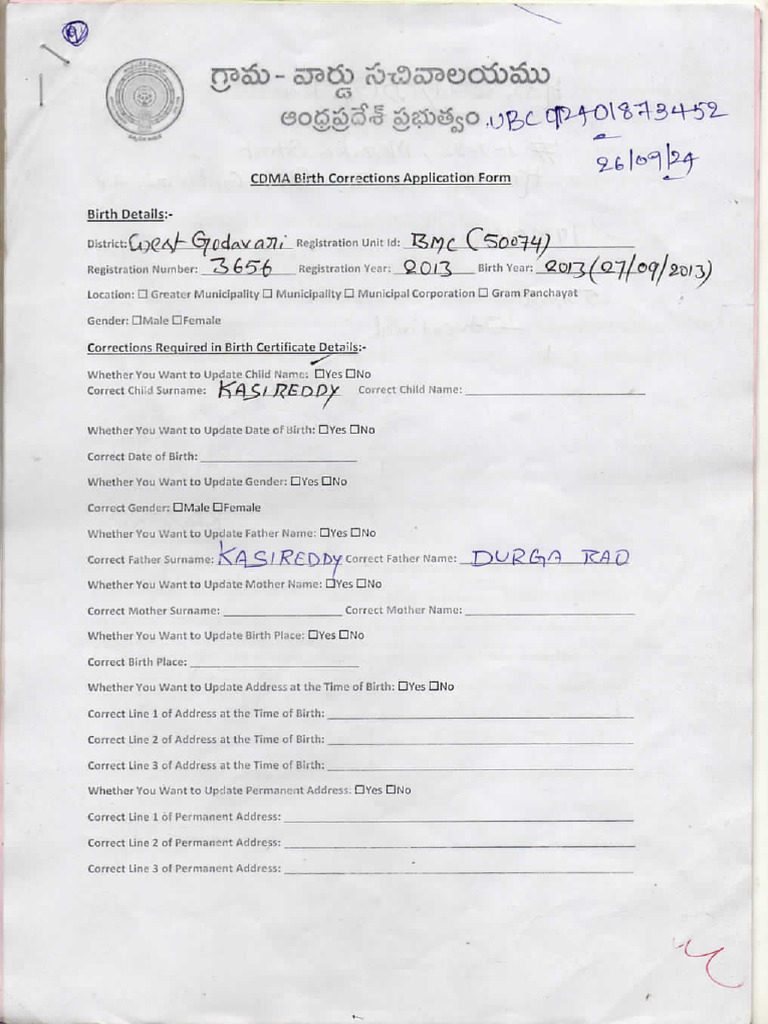 గ్రామ - వార్డు సచివాలయము
ఆంధ్రప్రదేశ్ ప్రభుత్వం
UBC012401873452
26/09/24
CDMA Birth Corrections Application Form
Birth Details:-
District: West Godavari Registration Unit Id: BMC (50074)
Registration Number: 3656 Registration Year: 2013 Birth Year: 2013(27/09/2013)
Location: ☐ Greater Municipality ☐ Municipality ☐ Municipal Corporation ☐ Gram Panchayat
Gender: ☐Male ☐Female
Corrections Required in Birth Certificate Details:-
Whether You Want to Update Child Name: ☐Yes ☐No
Correct Child Surname: KASIREDDY Correct Child Name:
Whether You Want to Update Date of Birth: ☐Yes ☐No
Correct Date of Birth:
Whether You Want to Update Gender: ☐Yes ☐No
Correct Gender: ☐Male ☐Female
Whether You Want to Update Father Name: ☐Yes ☐No
Correct Father Surname: KASIREDDY Correct Father Name: DURGA RAO
Whether You Want to Update Mother Name: ☐Yes ☐No
Correct Mother Surname: Correct Mother Name:
Whether You Want to Update Birth Place: ☐Yes ☐No
Correct Birth Place:
Whether You Want to Update Address at the Time of Birth: ☐Yes ☐No
Correct Line 1 of Address at the Time of Birth:
Correct Line 2 of Address at the Time of Birth:
Correct Line 3 of Address at the Time of Birth:
Whether You Want to Update Permanent Address: ☐Yes ☐No
Correct Line 1 of Permanent Address:
Correct Line 2 of Permanent Address:
Correct Line 3 of Permanent Address: